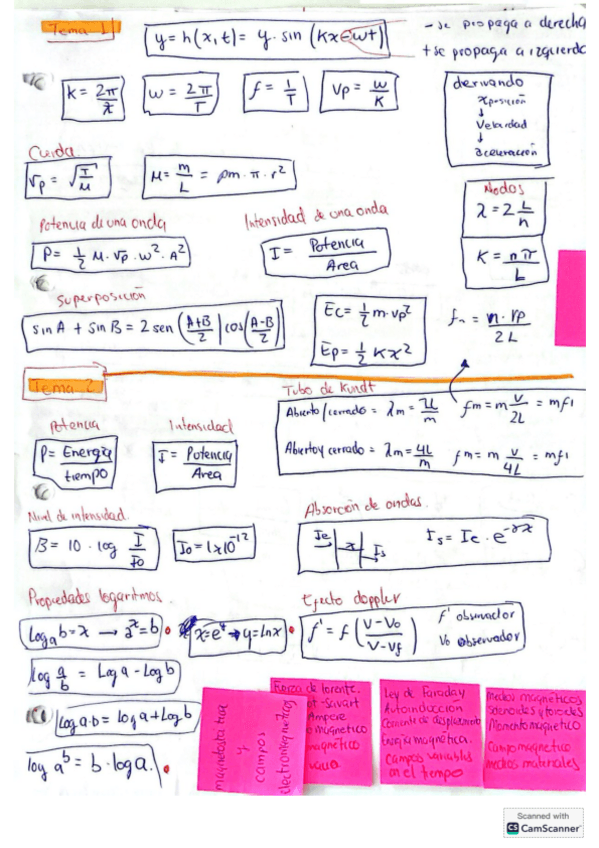 Tema 1
y = h(x,t) = y · sin (Kx - wt)
- se propaga a derecha
+ se propaga a izquierda
K = 2π/λ
w = 2π/T
f = 1/T
Vp = w/K
derivando
x posición
↓
Velocidad
↓
aceleración
Cuerda
Vp = √(T/μ)
μ = m/L = ρm · π · r²
Nodos
λ = 2 L/n
K = nπ/L
Potencia de una onda
P = 1/2 μ · Vp · w² · A²
Intensidad de una onda
I = Potencia/Area
Superposición
sin A + sin B = 2 sen (A+B/2) cos (A-B/2)
Ec = 1/2 m · vp²
Ep = 1/2 K x²
fn = n · vp / 2L
Tema 2
Tubo de Kundt
Abierto/cerrado = λm = 2L/m fm = m V/2L = mf1
Abierto y cerrado = λm = 4L/m fm = m V/4L = mf1
potencia
P = Energía/tiempo
Intensidad
I = Potencia/Area
Nivel de intensidad
B = 10 · log I/I0
I0 = 1x10⁻¹²
Absorción de ondas.
Ie x Is
Is = Ie · e^-αx
Propiedades logaritmos.
Log a b = x → aˣ = b
x = eʸ → y = lnx
log a/b = Log a - Log b
Log a·b = log a + Log b
log aᵇ = b · log a.
Efecto doppler
f' = f (V - Vo / V - Vf)
f' observador
Vo observador
magnetostática
y
campos
electromagnéticos
Fuerza de lorente.
ot-Savart
Ampere
o magnetico
magnético
vacío
Ley de Faraday
Autoinducción
Corriente de desplazamiento
Energía magnética.
Campos variables
en el tiempo
medios magnéticos
Solenoides y toroides
Momento magnetico
Campo magnetico
medios materiales
Scanned with
CS CamScanner